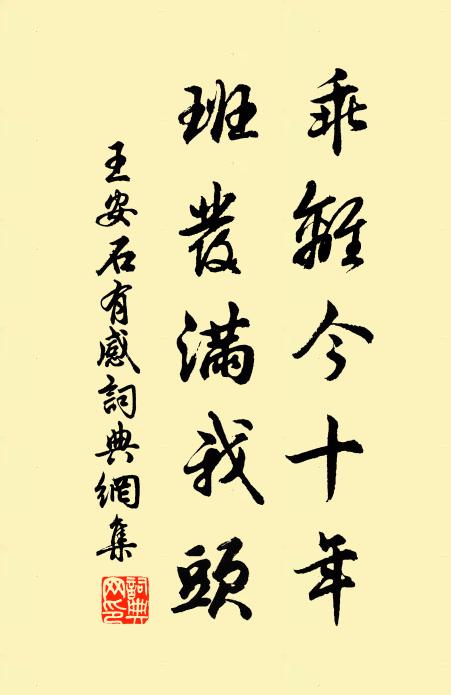 乖離今十年
班發滿我頭
王安石有感詞典網集
詞典
网印